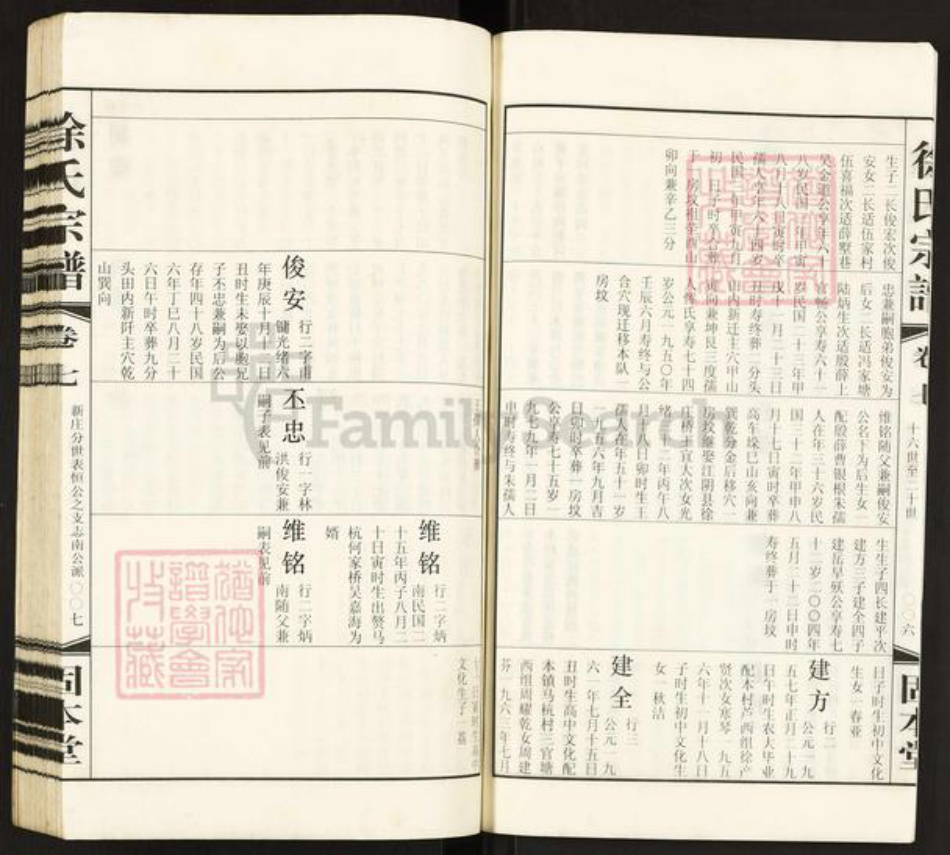 徐氏宗谱
卷七
十六世至二十世
〇〇六
固本堂
生子二长俊宏次俊
安女二长适伍家村
伍喜福次适薛墅巷
吴金道公享年六十
八岁民国
八月十八日寅时卒
孺人享年六十四岁
民国
初
卯向兼辛乙三分
忠兼嗣胞弟俊安为
后女二长适冯家塘
陆炳生次适殷薛上
官畅公享寿六十一
岁民国二十三年甲
戌十一月二十三日
丑时寿终葬二分头
山内新迁主穴甲山
庚向兼坤艮三度孺
人修氏享寿七十四
岁公元一九五〇年
壬辰六月寿终与公
合穴现迁移本队一
房坟
维铭随父兼嗣俊安
公名下为后生女一
配殷薛曹银根朱孺
人在年三十六岁民
国三十三年甲申八
月十七日寅时卒葬
高车垛巳山亥向兼
巽乾分金后移穴一
房坟继娶江阴县徐
庄桥王宜大次女光
绪三十二年丙午八
月十八日卯时生王
孺人在年五十一岁
一九五六年九月吉
日卯时卒葬一房坟
公享寿七十五岁一
九七九年一月二日
申时寿终与朱孺人
生生子四长建平次
建方三子建全四子
建岳早殀公享寿七
十二岁二〇〇四年
五月二十二日申时
寿终葬于一房坟
日子时生初中文化
生女一春亚
建方
行二
公元一九
五七年正月二十九
日午时生农大毕业
配本村芦西组徐产
贤次女寒琴一九五
六年十一月十八日
子时生初中文化生
女一秋洁
建全
行三
公元一九
六一年七月十五日
丑时生高中文化配
本镇马杭村三官塘
西组周耀乾女周建
芬一九六三年七月
徐氏宗谱
卷七
新庄分世表恒公之支志南公派
〇〇七
固本堂
俊安
行二字甫
镛光绪六
年庚辰十月十一日
丑时生未娶以胞兄
子丕忠兼嗣为后公
存年四十八岁民国
六年丁巳八月二十
六日午时卒葬九分
头田内新阡主穴乾
山巽向
丕忠
行一字林
洪俊安兼
嗣子表见前
维铭
行二字炳
南随父兼
嗣表见前
维铭
行二字炳
南民国二
十五年丙子八月二
十日寅时生出赘马
杭何家桥吴嘉海为
婿
文化生子一磊
FamilySearch